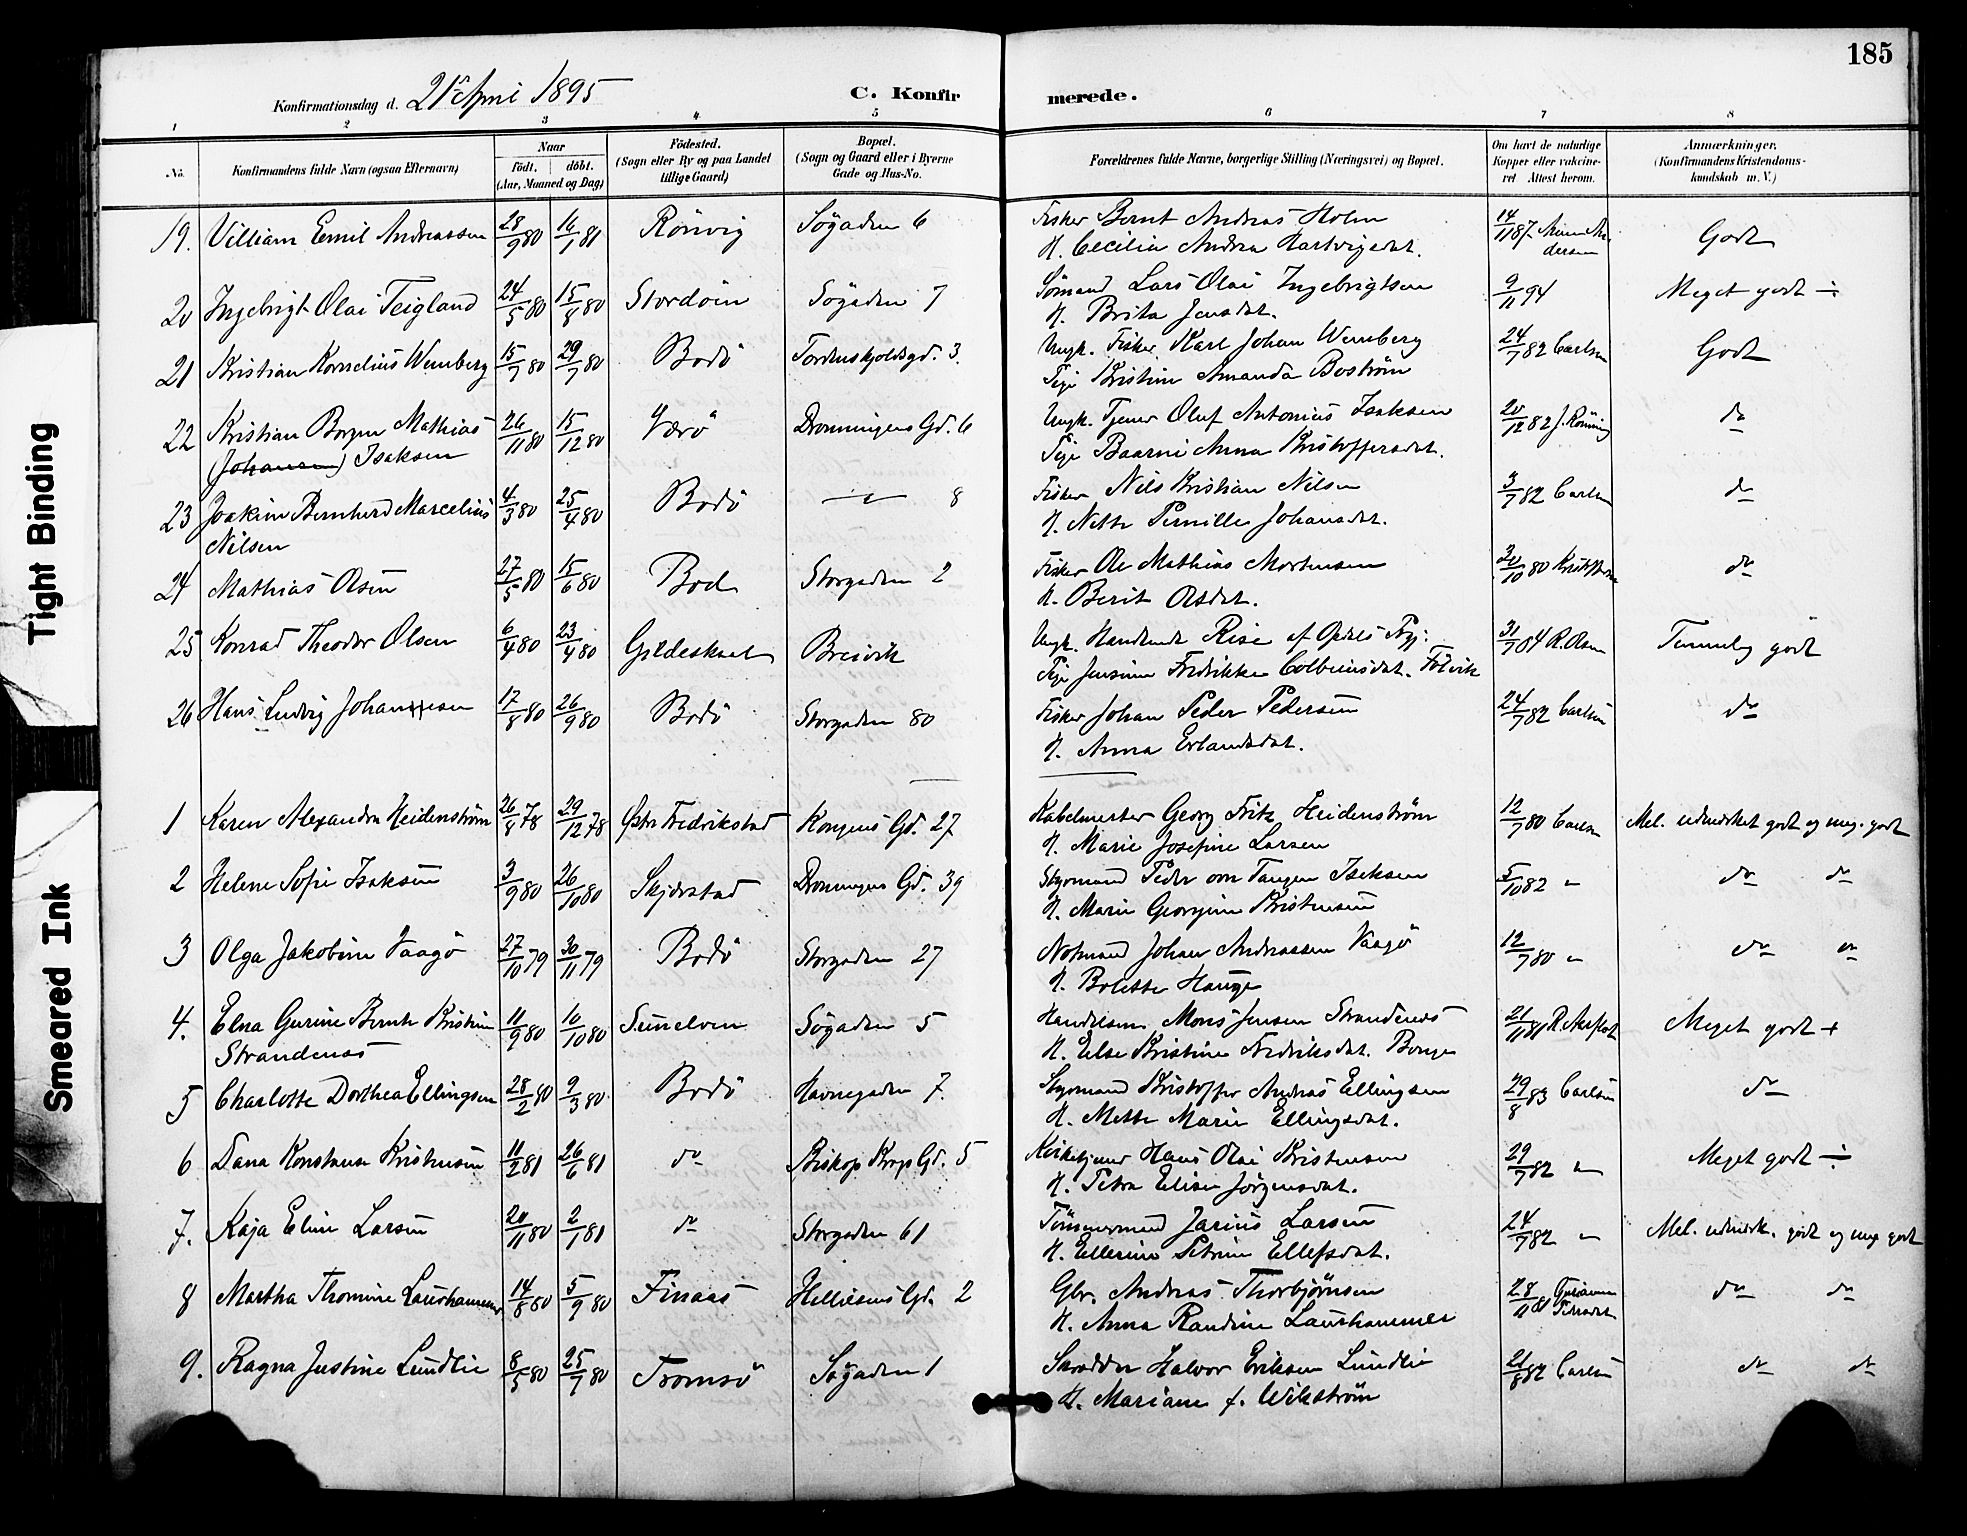 185
Konfirmationsdag d. 21s April 1895 C. Konfir merede.
1 2 3 4 5 6 7 8
No. Konfirmandens fulde Navn (ogsaa Efternavn) Naar født. døbt. (Aar, Maaned og Dag) Fødested. (Sogn eller By og paa Landet tillige Gaard) Bopæl. (Sogn og Gaard eller i Byerne Gade og Hus-No. Forældrenes fulde Navne, borgerlige Stilling (Næringsvei) og Bopæl. Om havt de naturlige Kopper eller vaccineret Attest herom. Anmærkninger. (Konfirmandens Kristendomskundskab m. V.)
19. Villiam Emil Andreassen 28/9 80 16/1 81 Rönvig Søgaden 6 Fisker Bernt Andreas Holm 14/11 87 Godt
H. Cecilia Andrea Hartvigsdat.
20 Ingebrigt Olai Teigland 24/5 80 15/8 80 Stordöen Søgaden 7 Sømand Lars Olai Ingebrigtsen 9/11 94 Meget godt ÷
H. Brita Jensdat.
21 Kristian Kornelius Wemberg 15/7 80 29/7 80 Bodö Tordenskjoldsgd. 3. Ungk. Fisker Karl Johan Wemberg 24/7 82 Carlsen Godt
Pige Kristine Amanda Boström
22 Kristian Borgen Mathias 26/11 80 15/12 80 Værö Dronningens Gd. 6 Ungk. Tjener Oluf Antonius Isaksen 20/12 82 J. Rönning do
(Johansen) Isaksen Pige Anna Kristoffersdat.
23 Joakim Bernhard Marcelius 4/3 80 25/4 80 Bodö — " — 8 Fisker Nils Kristian Nilsen 3/7 82 Carlsen do
Nilsen H. Nette Pernille Johansdat.
24 Mathias Olsen 27/5 80 15/6 80 Bod Storgaden 2 Fisker Ole Mathias Mortensen 30/10 80 do
H. Berit Olsdat.
25 Konrad Theodor Olsen 6/4 80 23/4 80 Gildeskaal Breivik Ungk. Rise af 31/7 84 R. Olsen Temmelig godt
Pige Jensine Fredrikke Colbeinsdat.
26 Hans Ludvig Johannesen 17/8 80 26/9 80 Bodö Storgaden 80 Fisker Johan Peder Pedersen 24/7 82 Carlsen do
H. Anna Erlandsdat.
1 Karen Alexandra Heidenström 26/8 78 29/12 78 Østre Fredrikstad Kongens Gd. 27 Kabelmester Georg Fritz Heidenström 12/7 80 Carlsen Mel. udmærket godt og meg. godt
H. Marie Josefine Larsen
2 Helene Sofie Isaksen 3/9 80 26/10 80 Skjerstad Dronningens Gd. 39 Styrmand Peder om Tangen Isaksen 5/10 82 " do do
H. Marie Georgine Kristensen
3 Olga Jakobine Vaagö 27/10 79 30/11 79 Bodö Storgaden 27 Notmand Johan Andreassen Vaagö 12/7 80 " do do
H. Bolette Hauge
4. Elna Gurine Bernh. Kristine 11/9 80 10/10 80 Sunelven Søgaden 5 Handelsm. Mons Jensen Strandenes 21/11 81 Meget godt +
Strandenæs H. Else Kristine Fredriksdat. Bonge
5 Charlotte Dorthea Ellingsen 28/2 80 9/3 80 Bodö Havnegaden 7. Styrmand Kristoffer Andreas Ellingsen 29/8 83 Carlsen do
H. Mette Marie Ellingsdat.
6 Dana Konstanse Kristensen 11/2 81 26/6 81 do Biskop Krogs Gd. 5 Kirketjener Hans Olai Kristensen 29/7 82 " Meget godt ÷
H. Petra Elise Jörgensdat.
7. Kaja Eline Larsen 20/11 80 2/1 81 do Storgaden 61 Tömmermand Jarius Larsen 24/7 82 " Mel. udmærk. godt og meg. godt
H. Ellerine Petrine Ellefsdat.
8 Martha Thomine Laushammer 14/8 80 5/9 80 Finaas Hellesens Gd. 2 Gbr. Andreas Thorbjørnsen 28/11 81 do do
H. Anna Randine Laushammer
9. Ragna Justine Lundlie 8/5 80 25/7 80 Tromsö Søgaden 1 Halvor Eriksen Lundlie 21/8 82 Carlsen do do
H. Mariane f. Wikström
Tight Binding
Smeared Ink